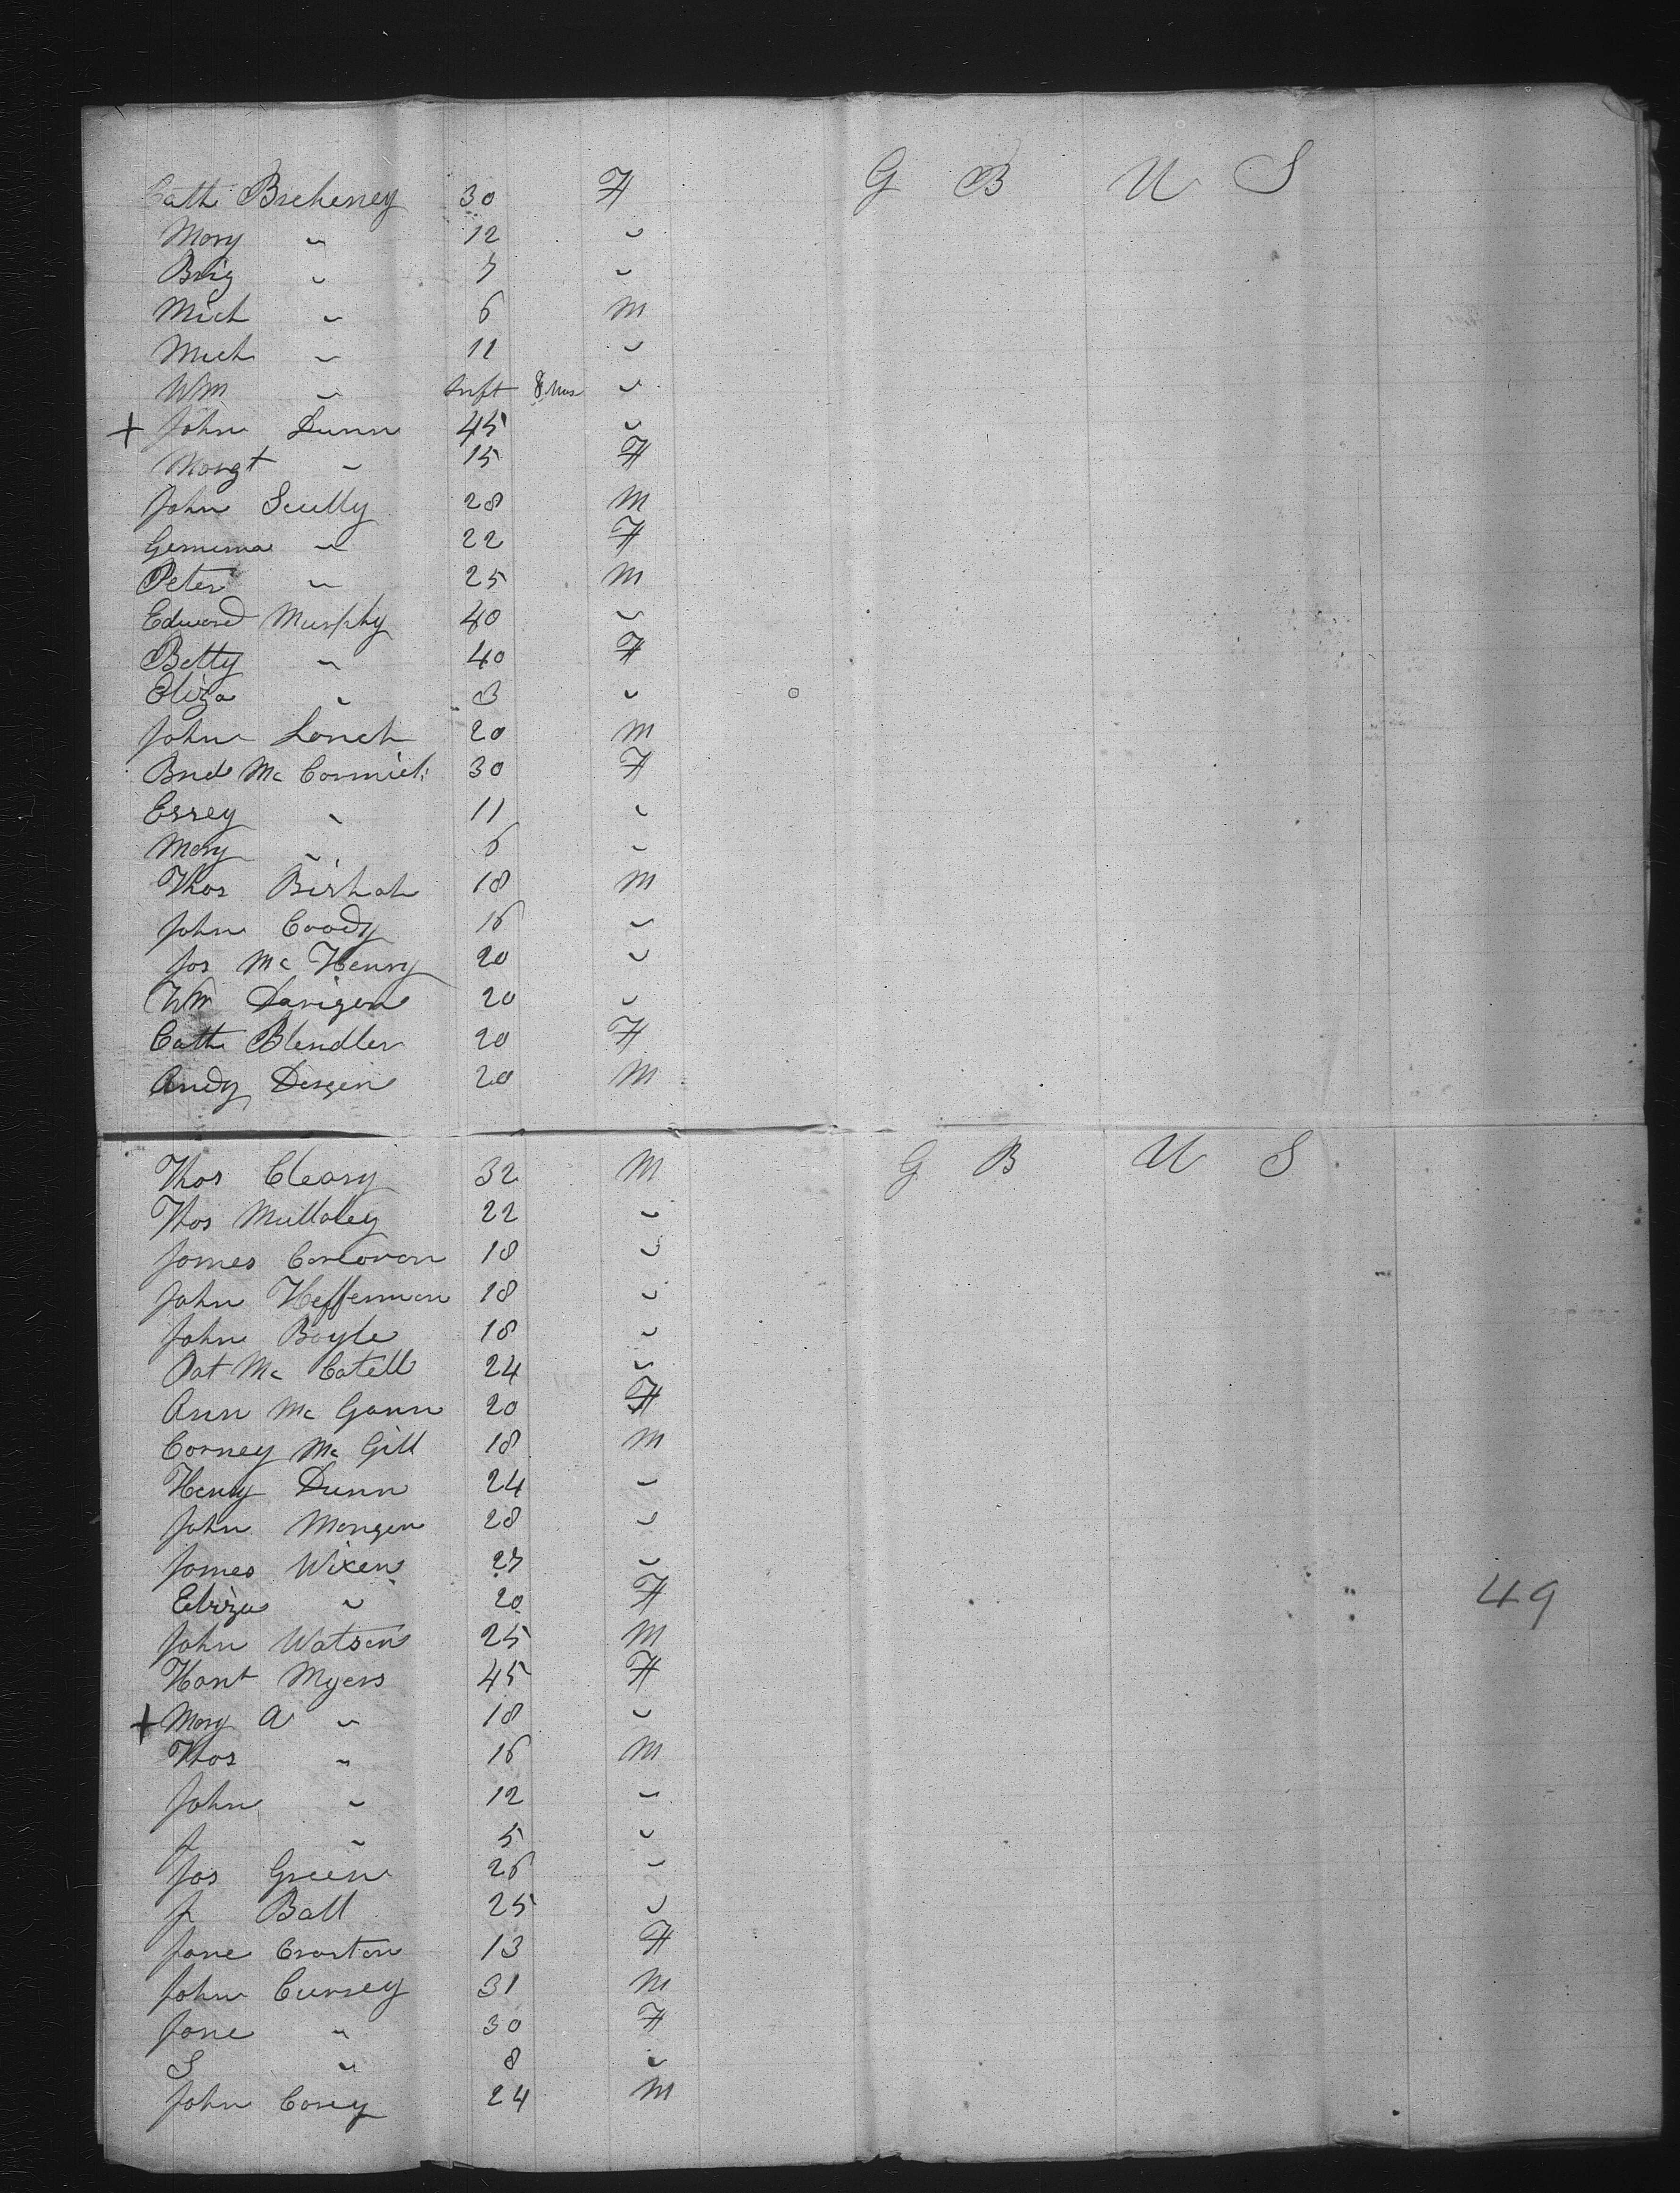 Cath Breheney 30 F G B U S
Mary " 12 "
Brig " 7 "
Mich " 6 M
Mich " 11 "
Wm " Inft 8 Mos "
+ John Dunn 45 "
Margt " 15 F
John Scully 28 M
Gemima " 22 F
Peter " 25 M
Edward Murphy 40 "
Betty " 40 F
Eliza " 3 "
John Lonch 20 M
Brid Mc Cormick 30 F
Essey " 11 "
Mary " 6 "
Thos 18 M
John Coody 16 "
Jos Mc Henry 20 "
Wm Davigen 20 "
Cath Blendler 20 F
Andy Dergen 20 M
Thos Cleary 32 M G B U S
Thos Mullaley 22 "
James Corcoran 18 "
John Heffernan 18 "
John Boyle 18 "
Pat Mc Catell 24 "
Ann Mc Gann 20 F
Corney Mc Gill 18 M
Henry Dunn 24 "
John Mangen 28 "
James Wixen 27 "
Eliza " 20 F
49
John Watson 25 M
Hant Myers 45 F
+ Mary A " 18 "
Thos " 16 M
John " 12 "
J " 5 "
Jos Green 26 "
J Ball 25 "
Jane Croston 13 F
John Cursey 31 M
Jane " 30 F
S " 8 "
John Corey 24 M